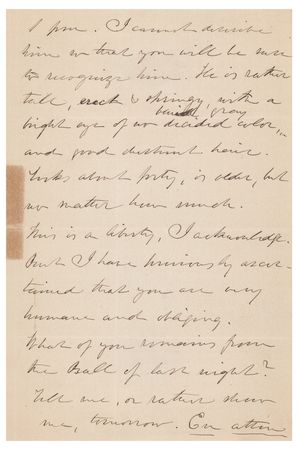 I pm. I cannot describe
him so that you will be sure
to recognize him. He is rather
tall, erect & springy, with a
bright eye of no decided color,
gray
and good hair.
Looks about forty, is older, but
no matter how much.
This is a liberty, I acknowledge.
But I have previously ascer-
tained that you are very
humane and obliging.
What of you remains from
the Ball of last night?
Tell me, or rather show
me, tomorrow. En atten